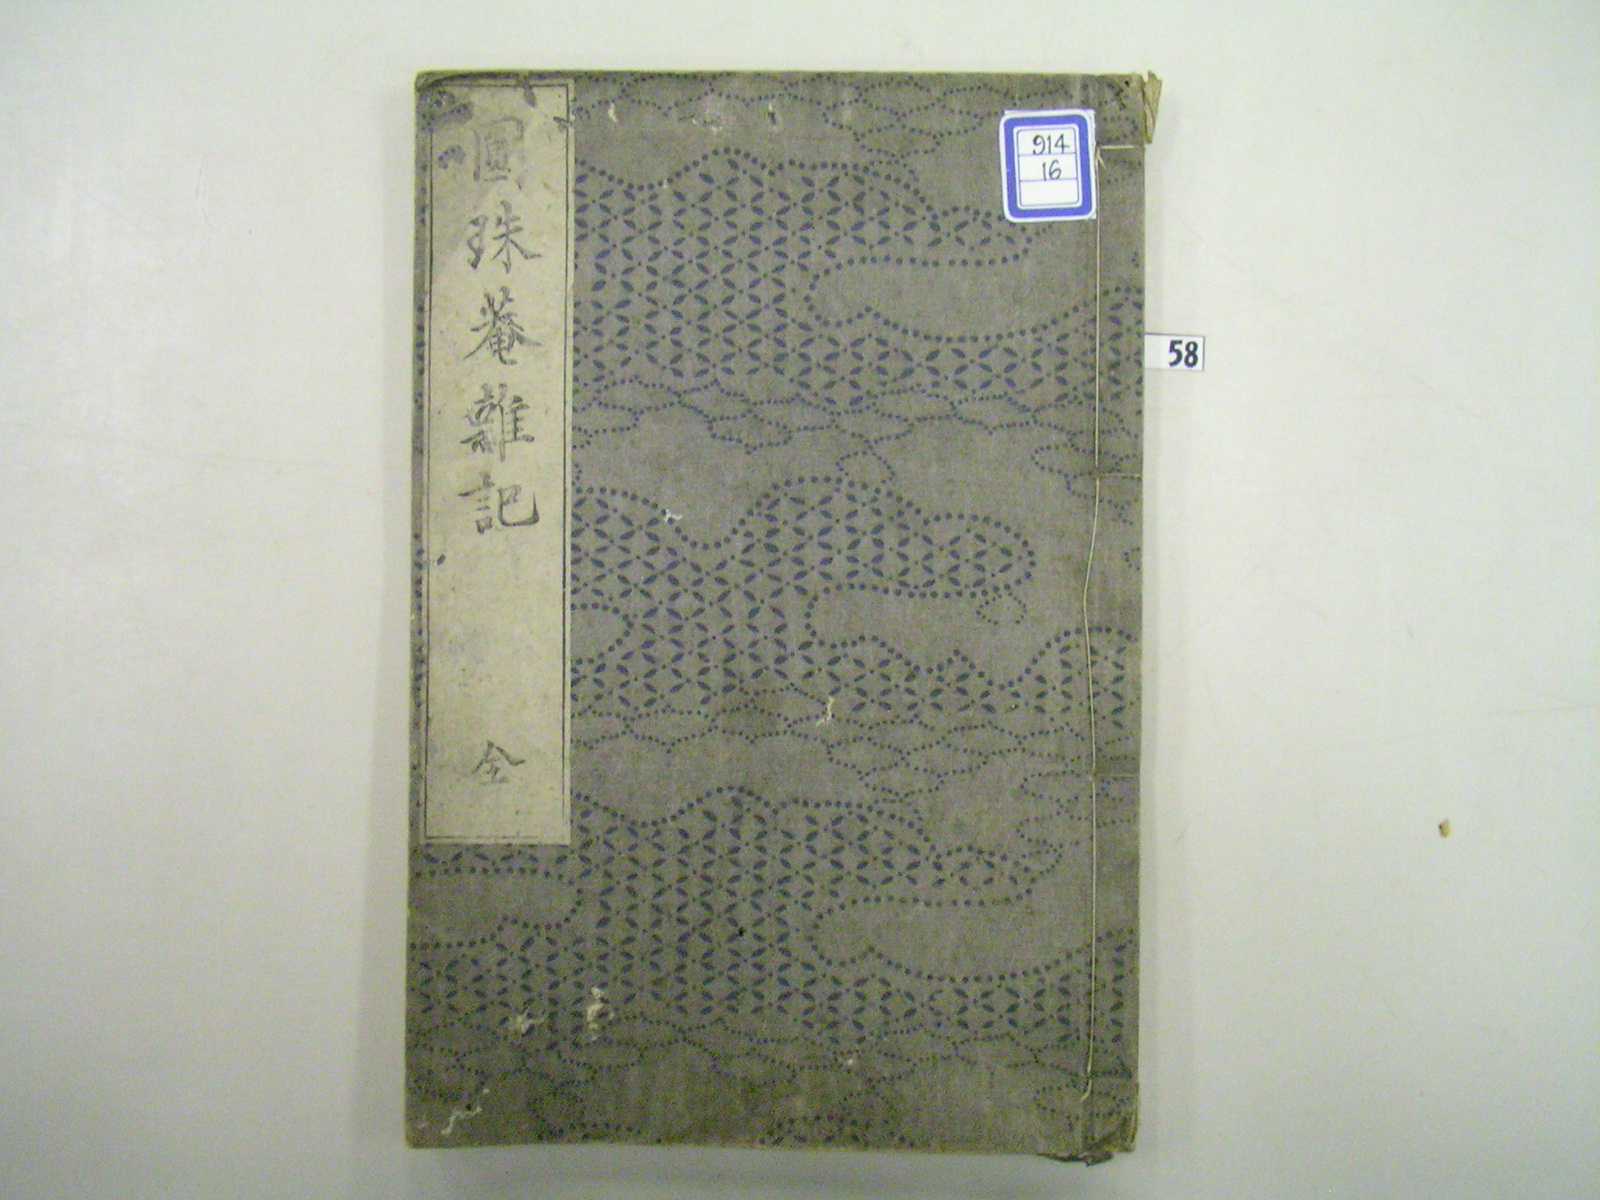 圓珠菴雜記
全
914
16
58